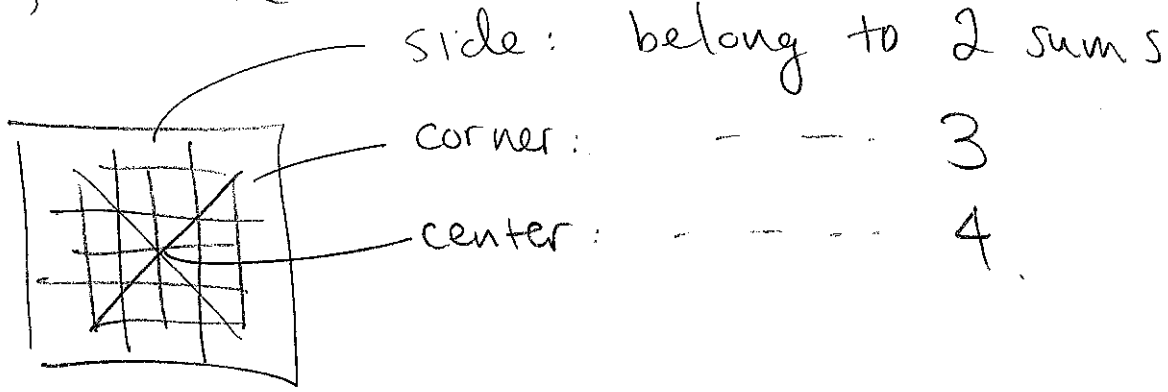 side: belong to 2 sums
corner: - - - 3
center: - - - - 4.